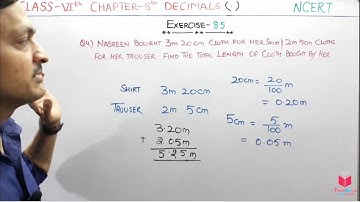 CLASS-VIth CHAPTER-8th DECIMALS (.) NCERT
EXERCISE-8.5
Q4) NASREEN BOUGHT 3m 20cm CLOTH FOR HER SHIRT 2m 5cm CLOTHS
FOR HER TROUSER. FIND THE TOTAL LENGTH OF CLOTH BOUGHT BY HER
SHIRT 3m 20cm
TROUSER 2m 5cm
3.20m
+ 2.05m
5.25m
20cm = 20/100 m
= 0.20m
5cm = 5/100 m
= 0.05m